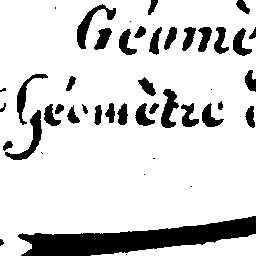 Géomè
Géomètre